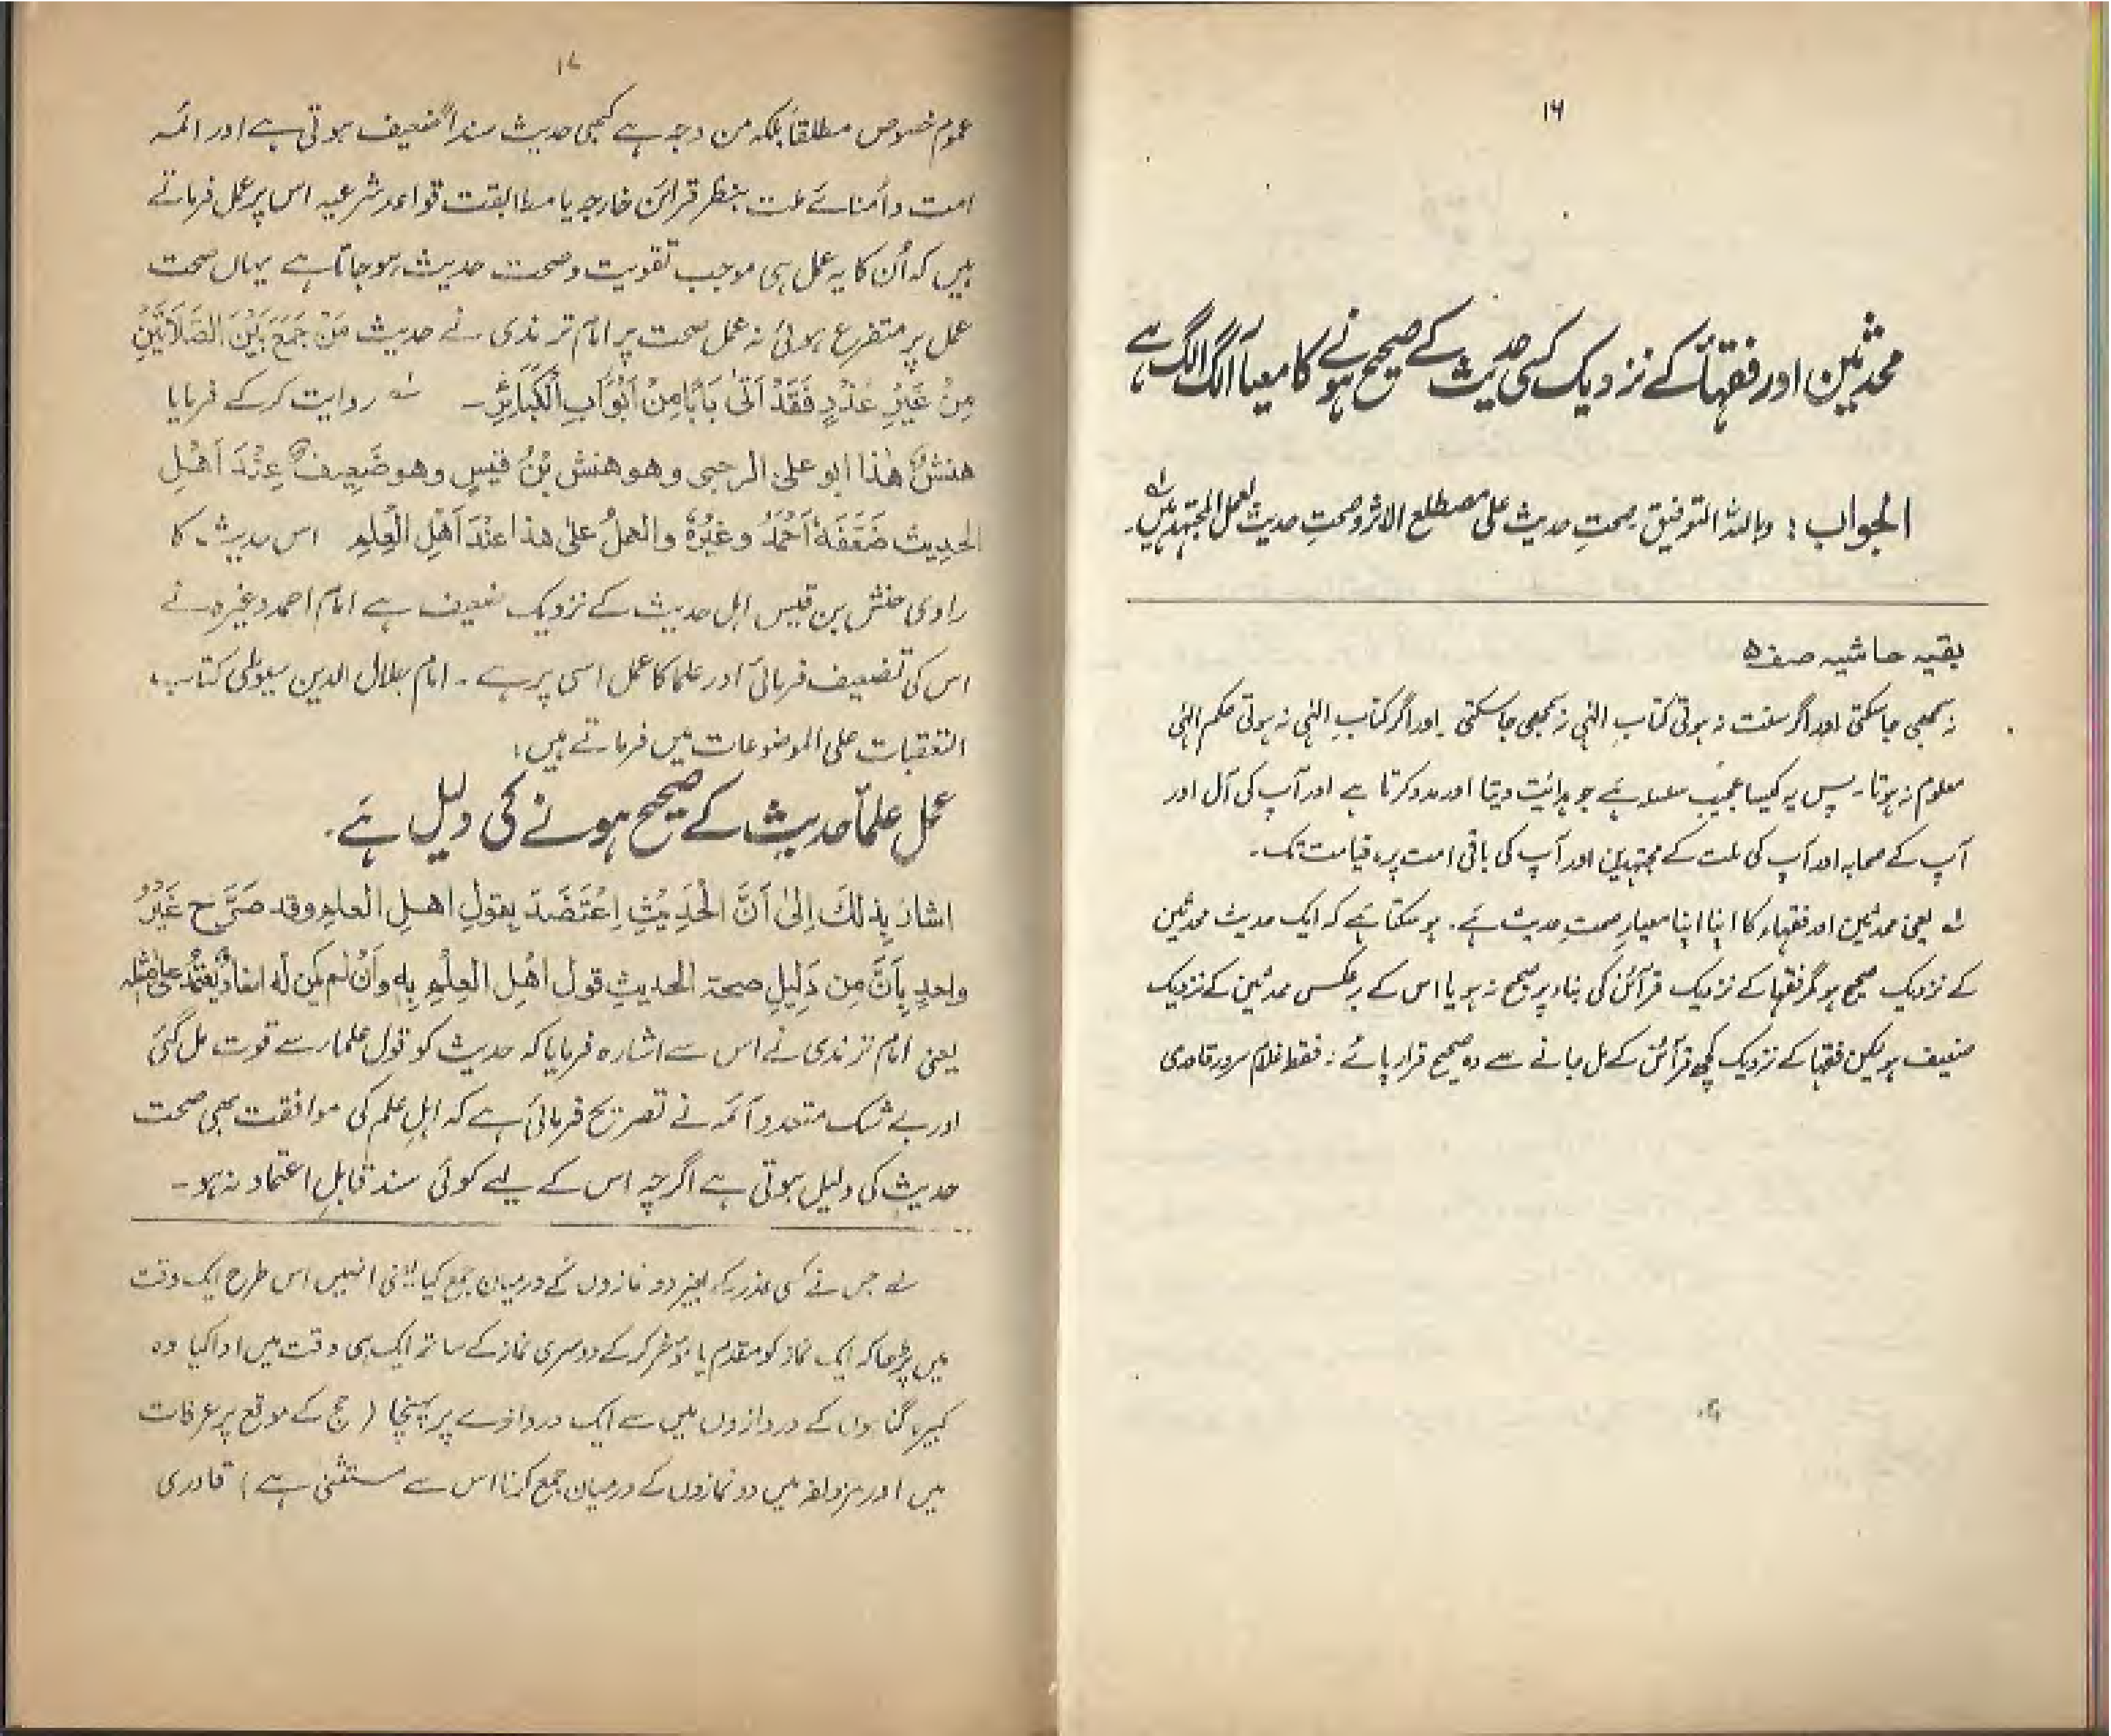 ۱۶
محدثین اور فقہاء کے نزدیک کسی حدیث کے صحیح ہونے کا معیار الگ الگ ہے
الجواب : وباللہ التوفیق صحتِ حدیث علی مصطلح الاثر وصحتِ حدیث لعمل المجتہدین ۔ لہ
بقیہ حاشیہ صفہ ۵
نہ سمجھی جا سکتی اور اگر سنت نہ ہوتی کتابِ الٰہی نہ سمجھی جا سکتی اور اگر کتابِ الٰہی نہ ہوتی حکم الٰہی
معلوم نہ ہوتا۔ پس یہ کیسا عجیب سلسلہ ہے جو ہدایت دیتا اور مدد کرتا ہے اور آپ کی آل اور
آپ کے صحابہ اور آپ کی ملت کے مجتہدین اور آپ کی باقی امت پر، قیامت تک۔
لہ یعنی محدثین اور فقہاء کا اپنا اپنا معیارِ صحتِ حدیث ہے۔ ہو سکتا ہے کہ ایک حدیث محدثین
کے نزدیک صحیح ہو مگر فقہا کے نزدیک قرآئن کی بناء پر صحیح نہ ہو یا اس کے برعکس محدثین کے نزدیک
ضعیف ہو لیکن فقہا کے نزدیک کچھ قرآئن کے مل جانے سے وہ صحیح قرار پائے : فقط غلام سرور قادری
۱۷
عموم خصوص مطلقاً بلکہ من وجہ ہے کبھی حدیث سنداً ضعیف ہوتی ہے اور ائمہ
امت و اُمنائے ملت بنظرِ قرائن خارجہ یا مطابقت قواعد شرعیہ اس پر عمل فرماتے
ہیں کہ اُن کا یہ عمل ہی موجب تقویت و صحت حدیث ہو جاتا ہے یہاں صحت
عمل پر متفرع ہوئی نہ عمل صحت پر امام ترمذی نے حدیث مَنْ جَمَعَ بَيْنَ الصَّلَاتَيْنِ
مِنْ غَيْرِ عُذْرٍ فَقَدْ اَتٰى بَابًا مِنْ اَبْوَابِ الْكَبَائِرِ۔ لہ روایت کرکے فرمایا
هنشٌ هٰذا ابو على الرحبى وهو هنش بْنُ قيسٍ وهو ضَعِيفٌ عِنْدَ اَهْلِ
الحديث ضَعَّفَهٗ اَحْمَدُ وغَيْرُهٗ والعملُ علىٰ هذا عِنْدَ اَهْلِ الْعِلْمِ اس حدیث کا
راوی حنش بن قیس اہل حدیث کے نزدیک ضعیف ہے امام احمد وغیرہ نے
اس کی تضعیف فرمائی اور علما کا عمل اسی پر ہے ۔ امام جلال الدین سیوطی کتاب
التعقبات علی الموضوعات میں فرماتے ہیں :
عمل علماً حدیث کے صحیح ہونے کی دلیل ہے ۔
اشار بِذٰلكَ اِلىٰ اَنَّ الْحَدِيْثِ اِعْتَضَدَ بِقولِ اهلِ العلمِ وقد صَرَّح غَيْرُ
واحدٍ بِاَنَّ مِن دَلِيْلِ صحة الحديثِ قول اهْلِ العِلْمِ بِهٖ واَنْ لم يكن له اسنادٌ يُعْتمدُ علىٰ مثله
یعنی امام ترمذی نے اس سے اشارہ فرمایا کہ حدیث کو قول علماء سے قوت مل گئی
اور بے شک متعدد آئمہ نے تصریح فرمائی ہے کہ اہلِ علم کی موافقت بھی صحت
حدیث کی دلیل ہوتی ہے اگرچہ اس کے لیے کوئی سند قابلِ اعتماد نہ ہو۔
لہ جس نے کسی عذر کے بغیر دو نمازوں کے درمیان جمع کیا یعنی انہیں اس طرح ایک وقت
میں پڑھا کہ ایک نماز کو مقدم یا مؤخر کرکے دوسری نماز کے ساتھ ایک ہی وقت میں ادا کیا وہ
کبیرہ گناہوں کے دروازوں میں سے ایک دروازے پر پہنچا ( حج کے موقع پر عرفات
میں اور مزدلفہ میں دو نمازوں کے درمیان جمع کرنا اس سے مستثنیٰ ہے ) قادری